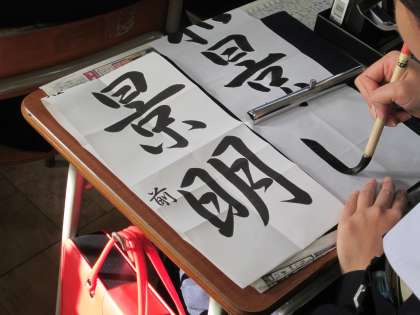 景明
前
景